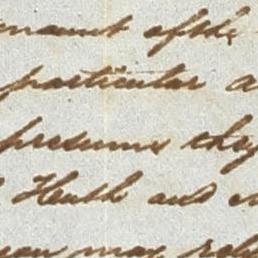 amount of the
particular a
presume they
Heath and
you may rely